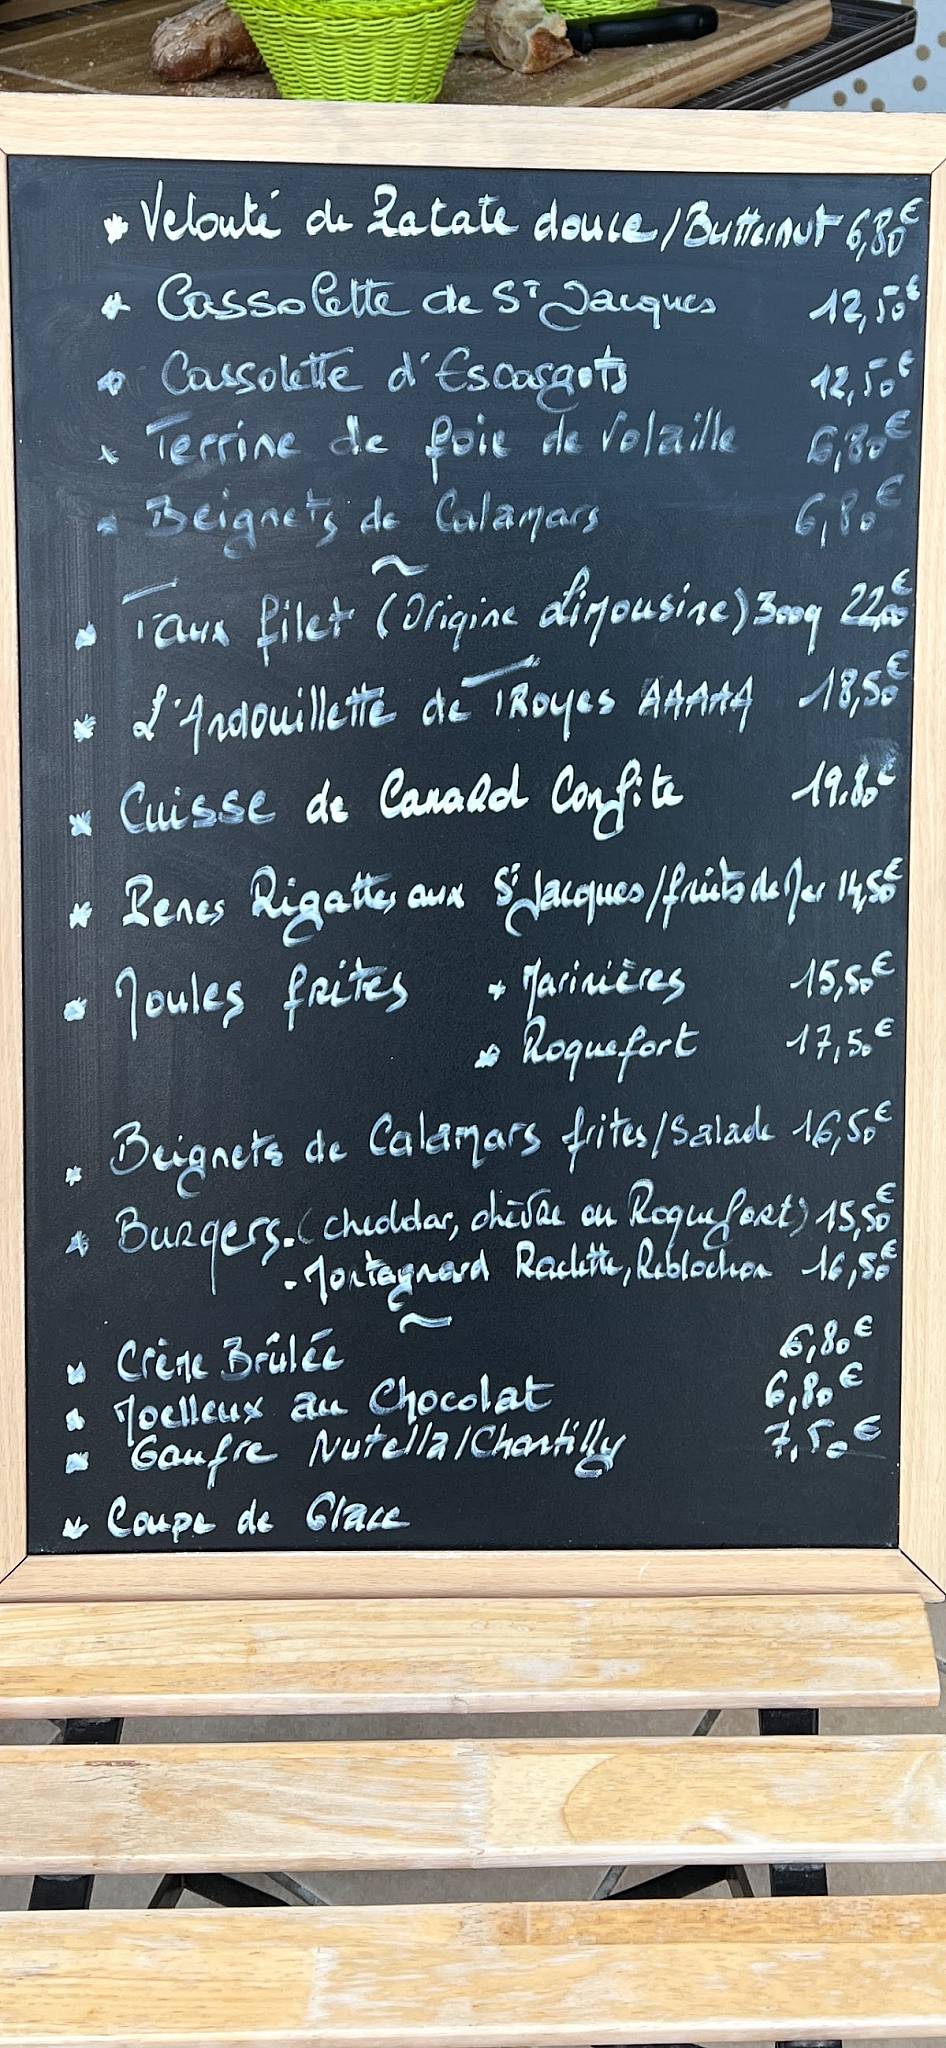 * Velouté de Patate douce/Butternut 6,80€
* Cassolette de St Jacques 12,50€
* Cassolette d'Escargots 12,50€
* Terrine de foie de Volaille 6,80€
* Beignets de Calamars 6,80€
~
* Faux filet (Origine Limousine) 300g 22,00€
* L'Andouillette de TRoyes AAAAA 18,50€
* Cuisse de Canard Confite 19.80€
* Penes Rigattes aux St Jacques/fruits de Mer 14,50€
* Moules frites * Marinières 15,50€
* Roquefort 17,50€
* Beignets de Calamars frites/Salade 16,50€
* Burgers. (cheddar, chèvre ou Roquefort) 15,50€
- Montagnard Raclette, Reblochon 16,50€
~
* Crème Brûlée 6,80€
* Moelleux au Chocolat 6,80€
* Gaufre Nutella/Chantilly 7,50€
* Coupe de Glace